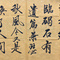 臨碣石有
遺篇蕭瑟
秋風今又是